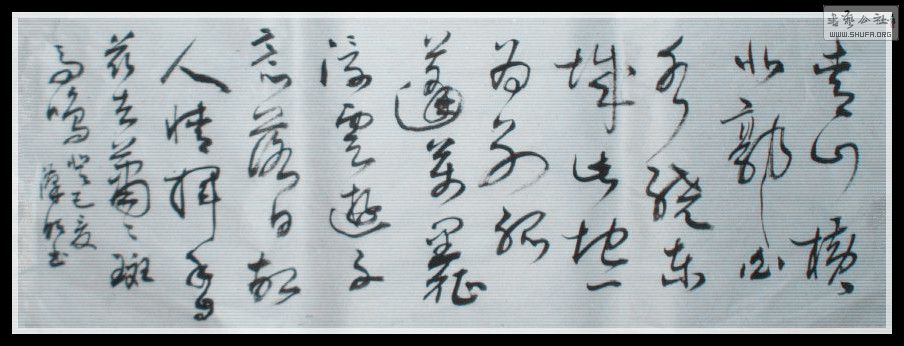 青山橫
北郭白
水繞東
城此地一
为别孤
蓬萬里征
浮雲遊子
意落日故
人情揮手自
兹去蕭々斑
馬鳴 癸巳夏
书
書藝公社
WWW.SHUFA.ORG